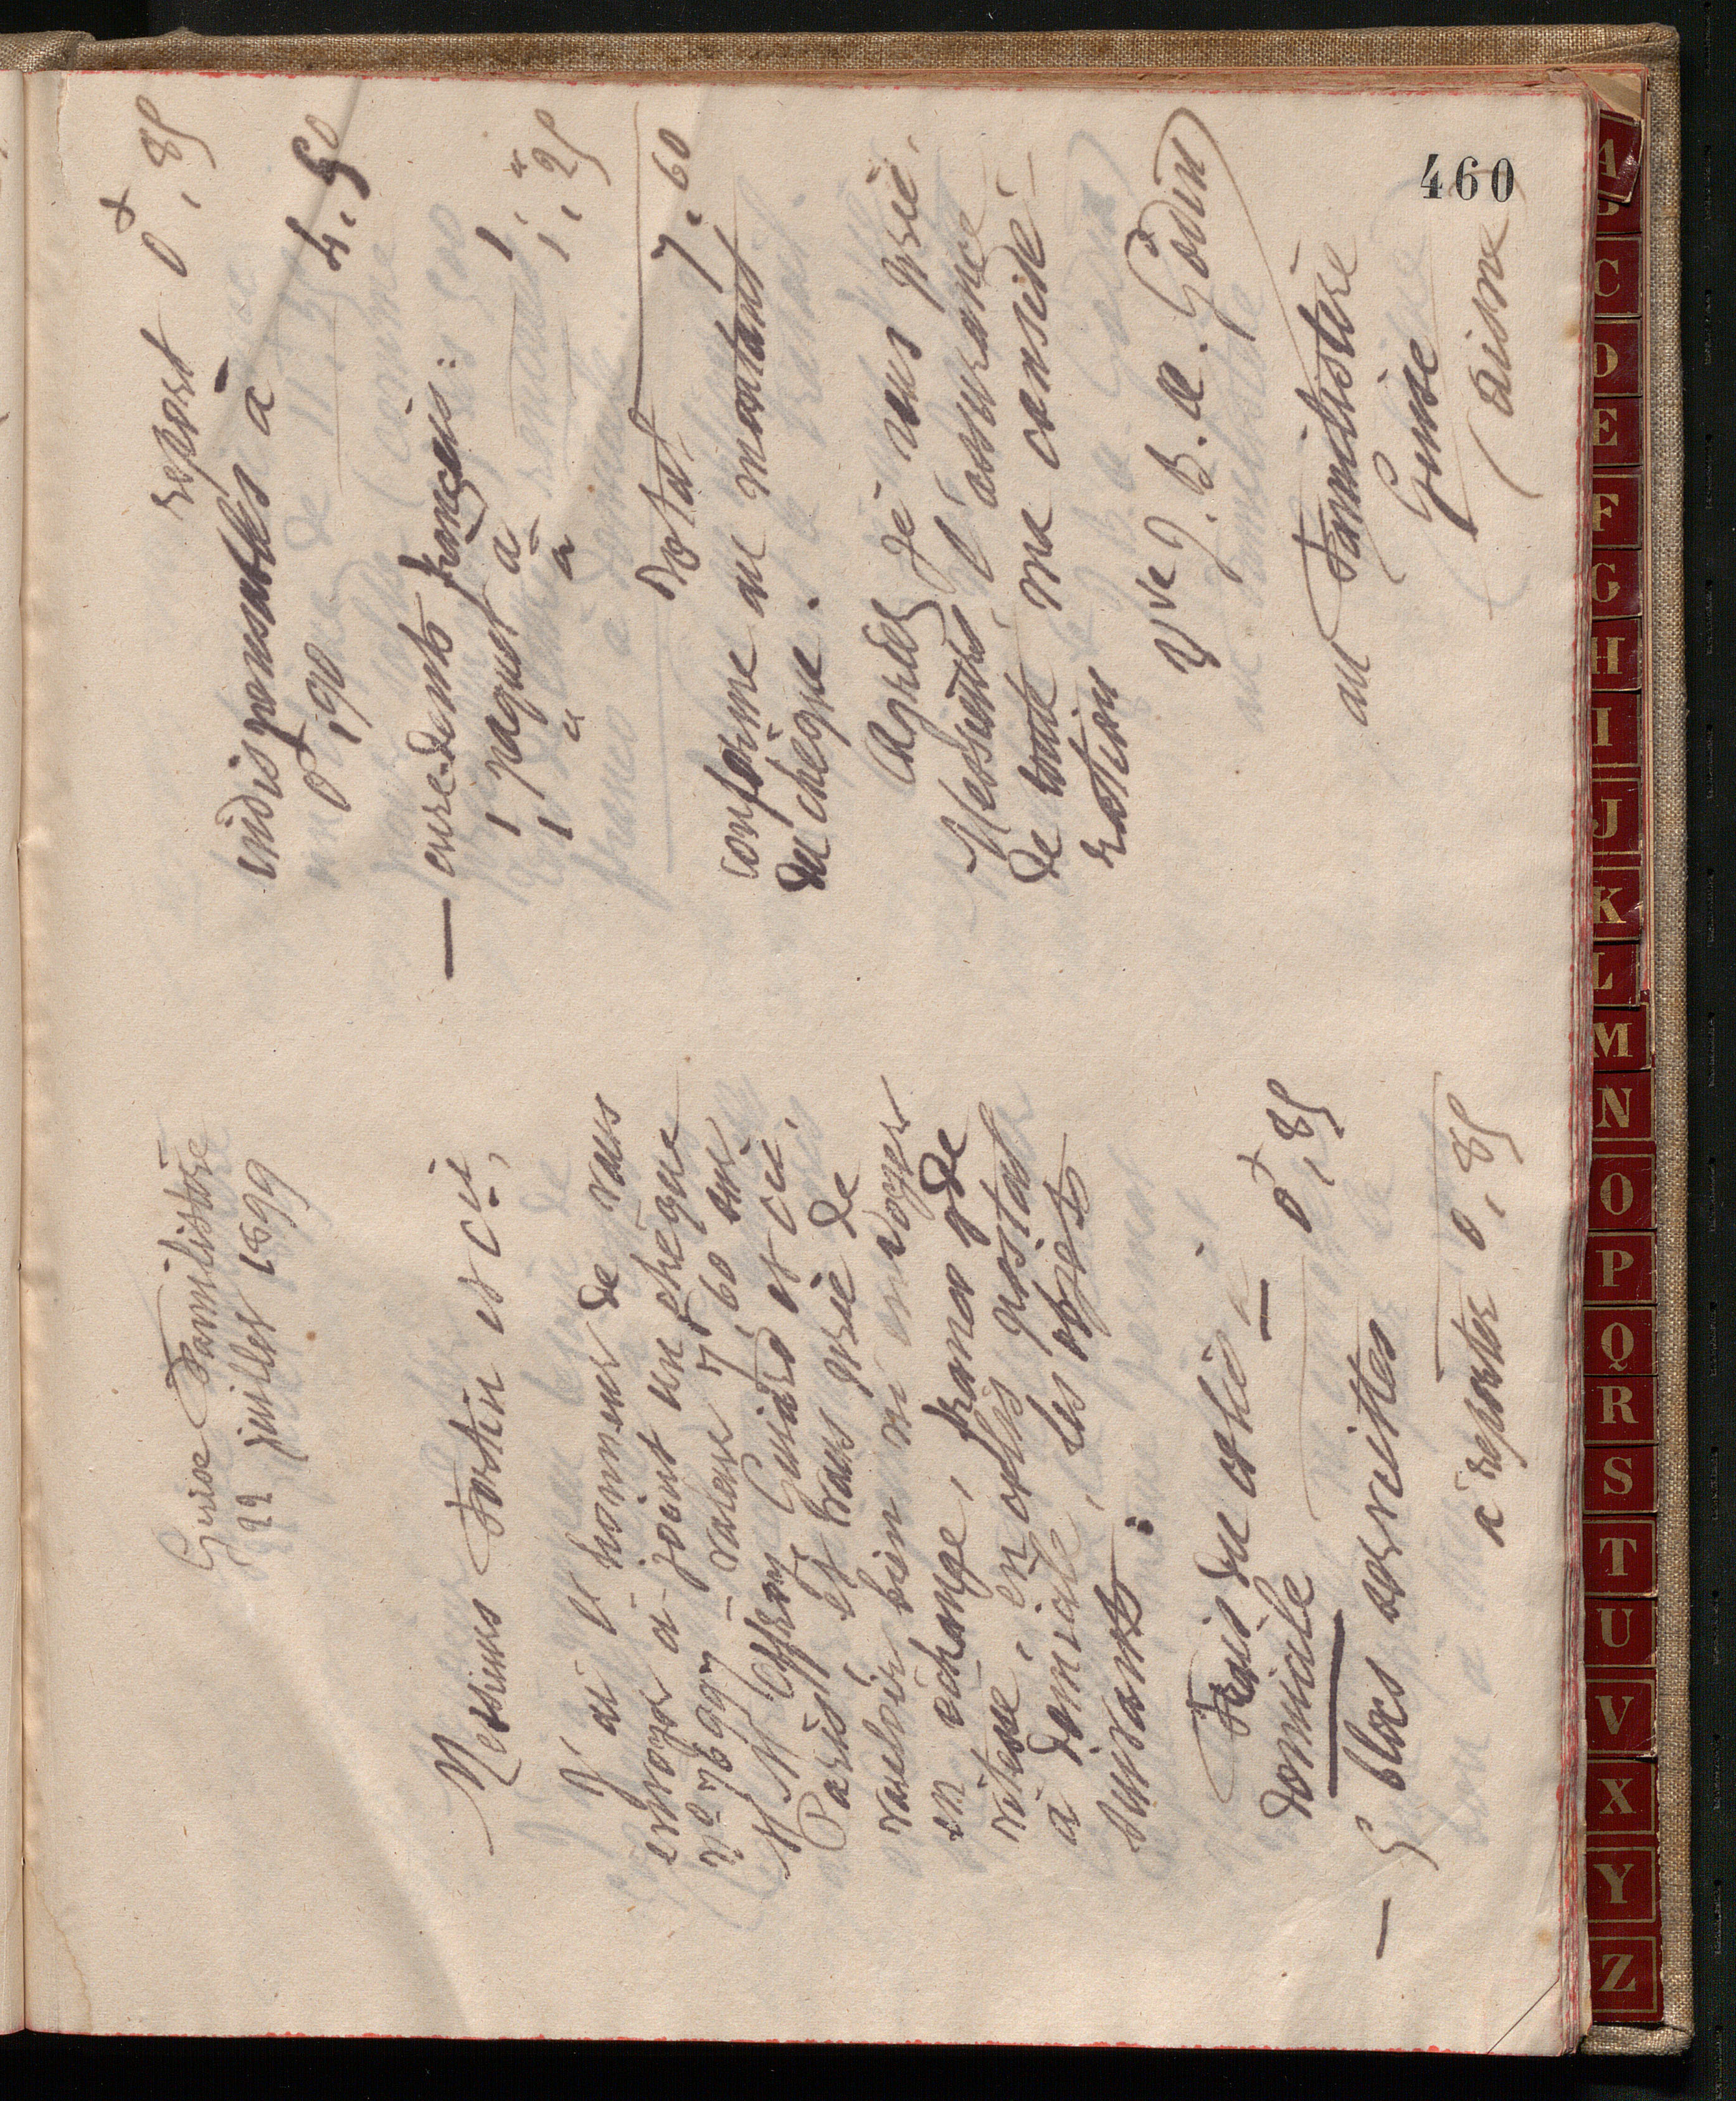 460
Guise Familistère
22 juillet 1899
Messieurs Fortin et Cie,
J'ai l'honneur de vous
envoyer ci-joint un chèque
valeur 7f,60 sur
MM Offroy, Guiard et Cie,
Paris, et vous prie de
vouloir bien m'envoyer
en échange, franco gde
vitesse, en colis postal
à domicile, les objets
suivants :
Prix du colis à
domicile 0f,85
— 5 blocs
à reporter 0,85
report 0f,85
indispensables à
0f,90 4,50
— cure-dents français :
1 paquet à 1,"
1 " à 1,25
Total 7,60
conforme au montant
du chèque.
Agréez je vous prie,
Messieurs, l'assurance
de toute ma considé-
ration
Vve J. B. A. Godin
au Familistère
Guise
(Aisne)
A
C
D
E
F
G
H
I
J
K
L
M
N
O
P
Q
R
S
T
U
V
X
Y
Z